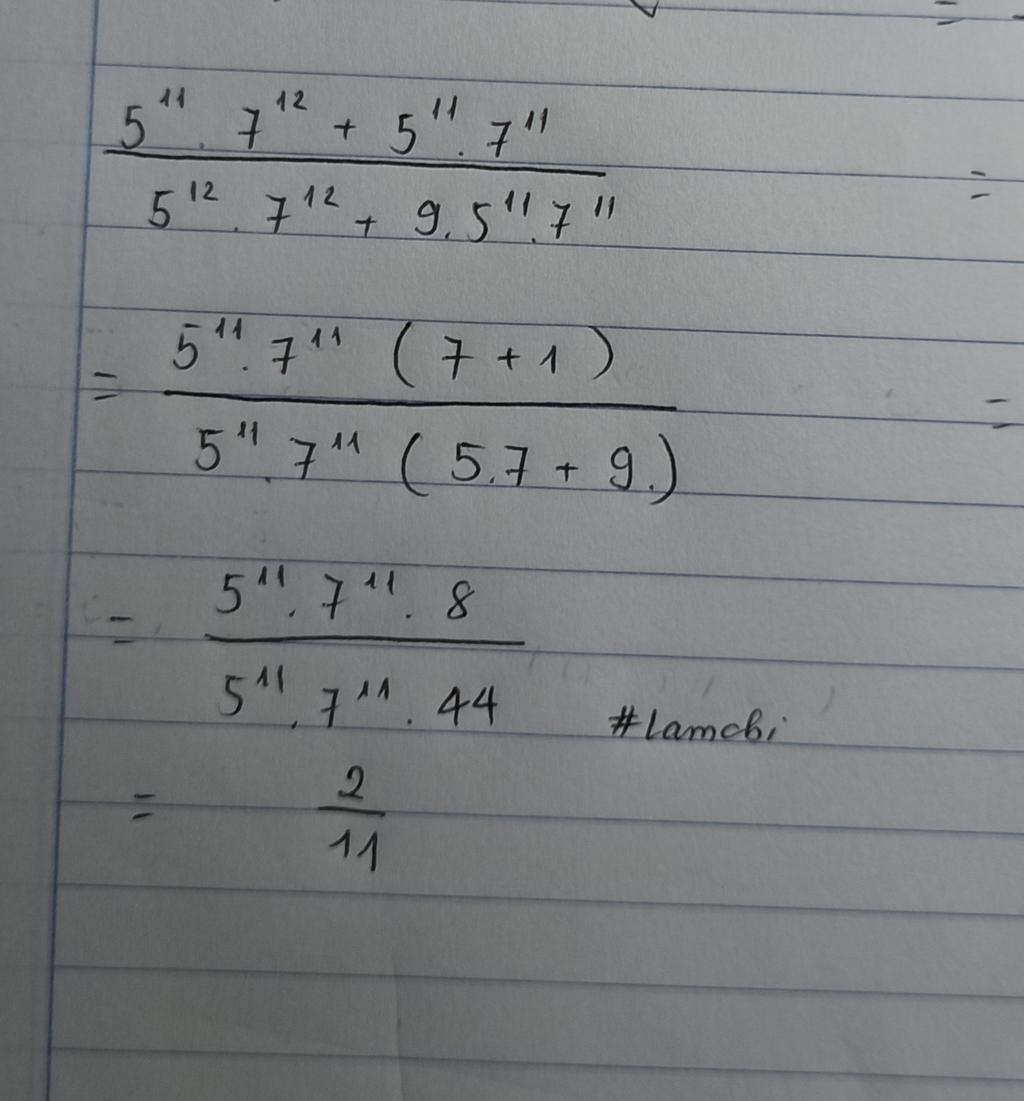 =
5¹¹ . 7¹² + 5¹¹ . 7¹¹
5¹² . 7¹² + 9 . 5¹¹ . 7¹¹
=
= 5¹¹ . 7¹¹ ( 7 + 1 )
5¹¹ . 7¹¹ ( 5.7 + 9. )
=
= 5¹¹ . 7¹¹ . 8
5¹¹ . 7¹¹ . 44
#Lamchi
= 2
11